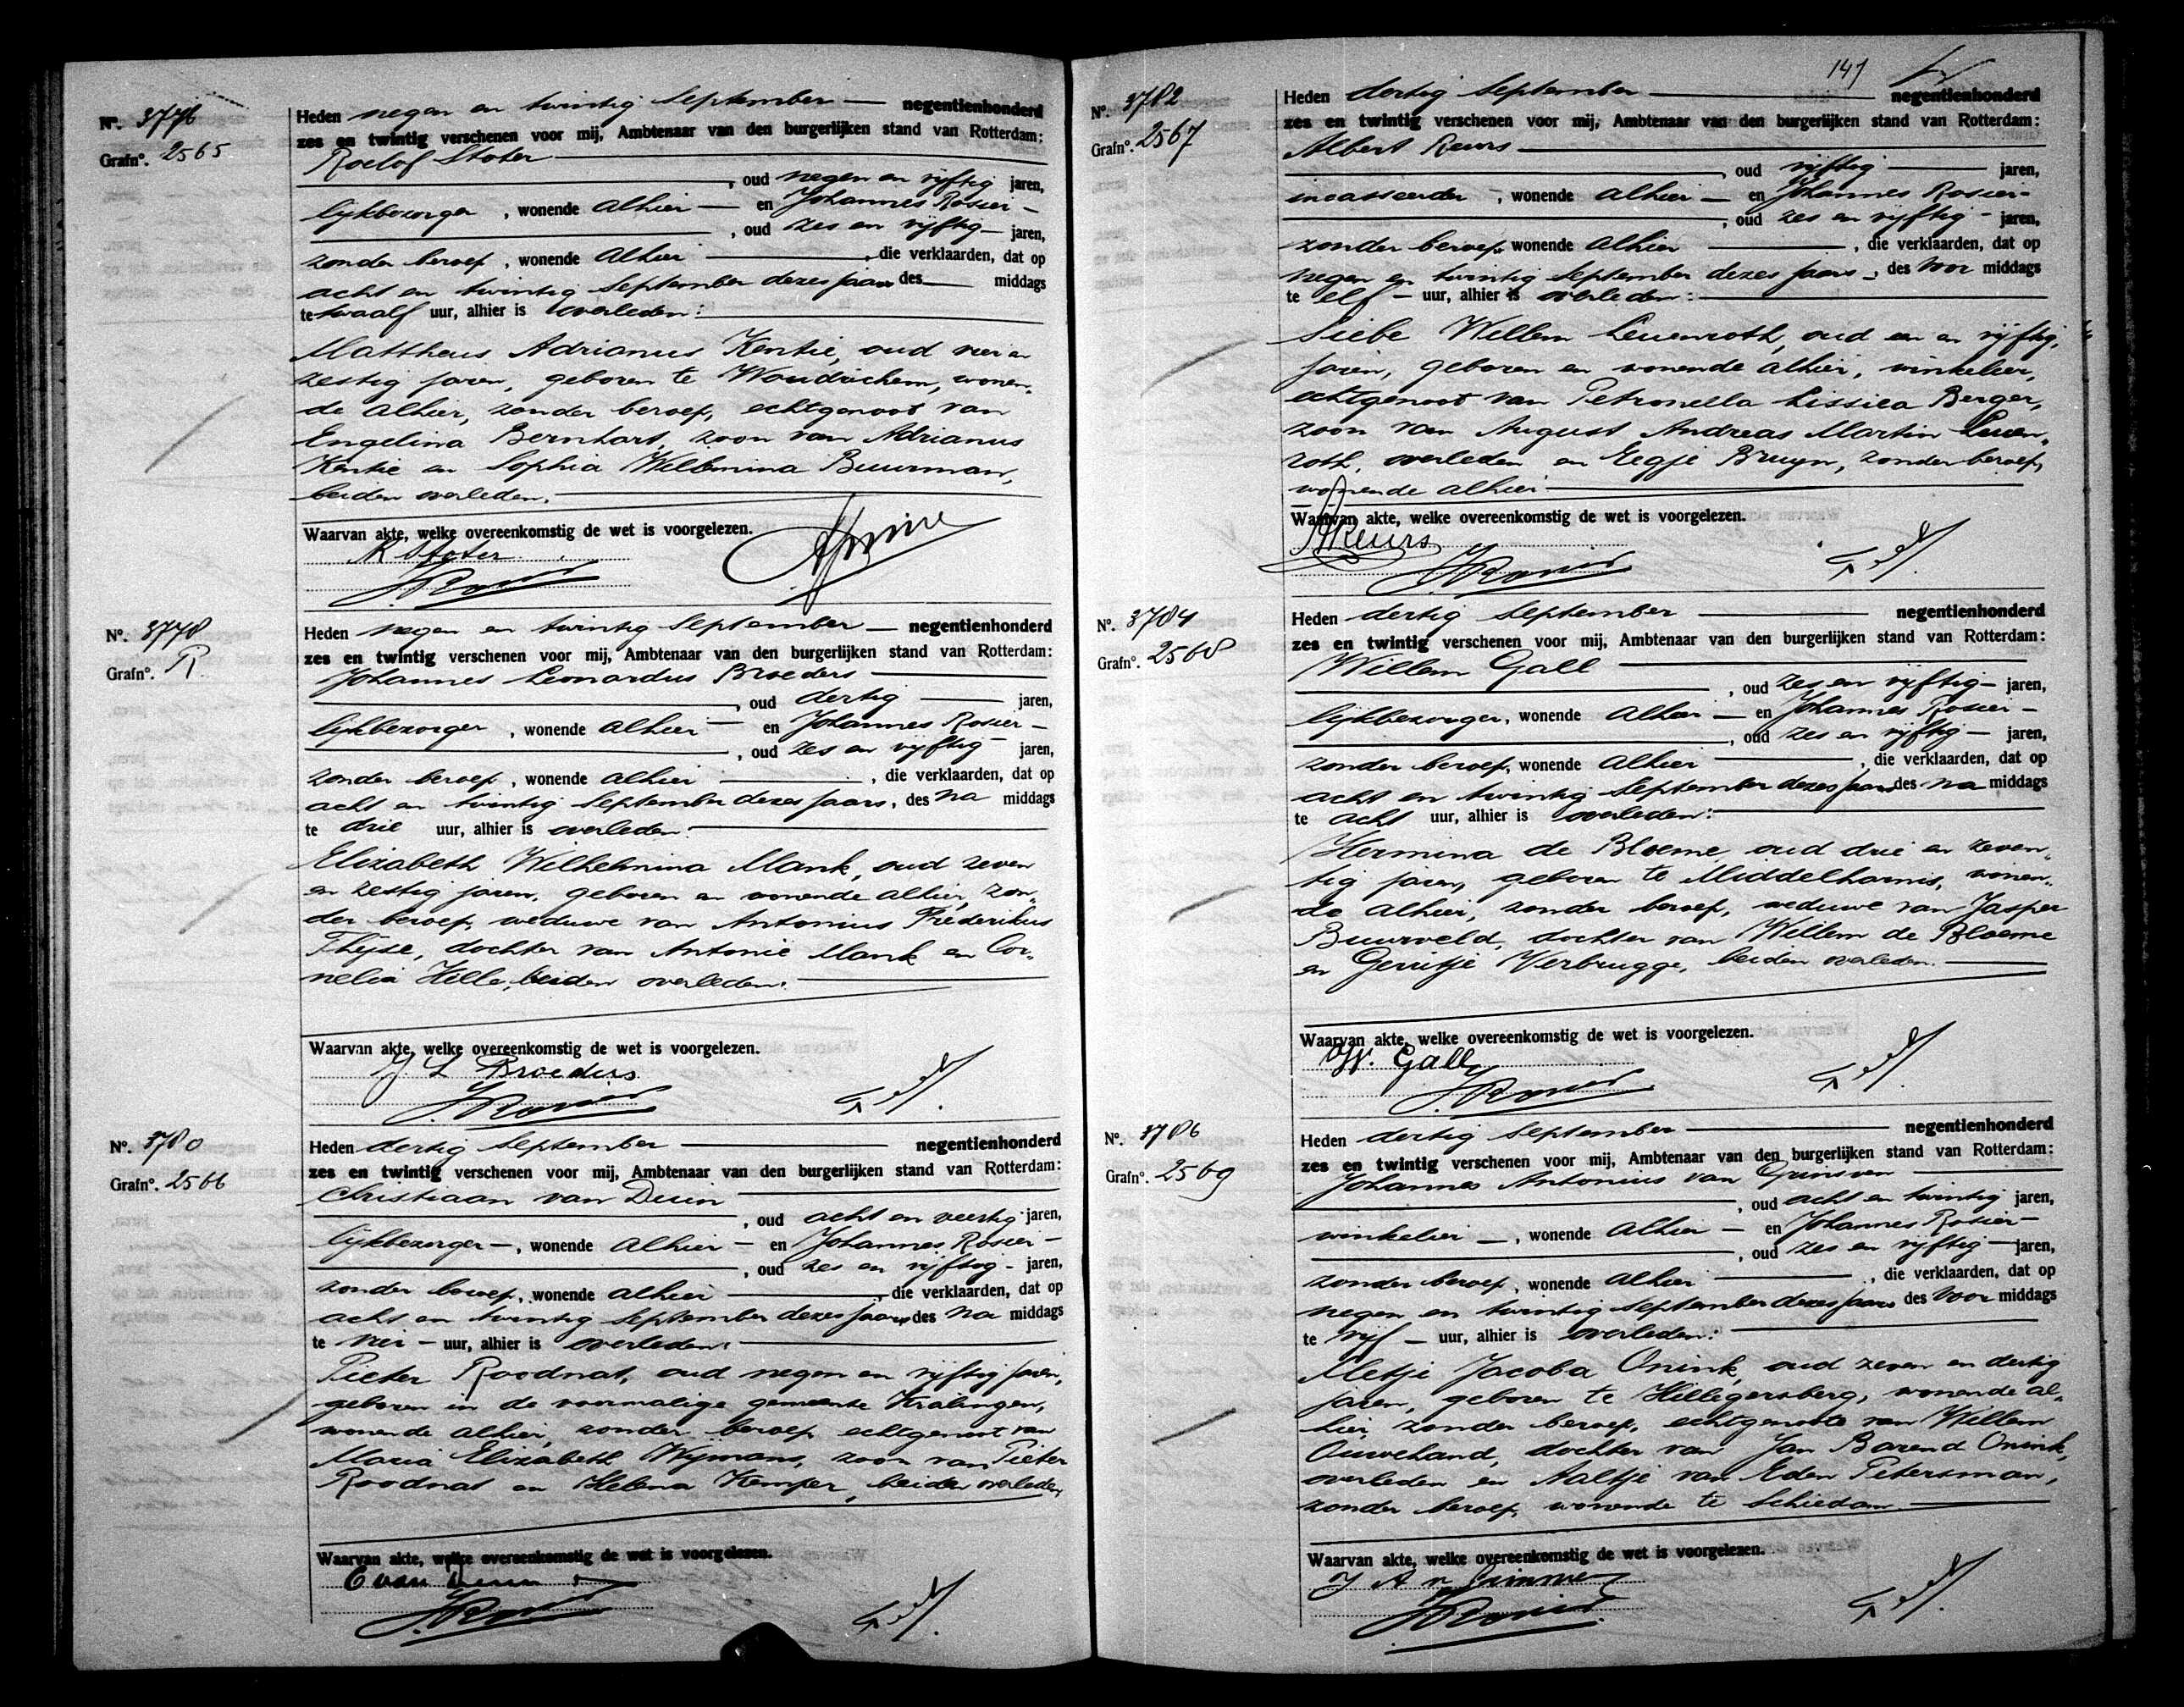 Nº. 3776
Grafnº. 2565
Heden negen en twintig September — negentienhonderd
zes en twintig verschenen voor mij, Ambtenaar van den burgerlijken stand van Rotterdam:
Roelof Stoter
, oud negen en vijftig jaren,
lijkbezorger, wonende alhier — en Johannes Rosier —
, oud zes en vijftig — jaren,
zonder beroep, wonende alhier —, die verklaarden, dat op
acht en twintig September dezes jaars des — middags
te twaalf uur, alhier is overleden:
Mattheus Adrianus Kentie, oud vier en
zestig jaren, geboren te Woudrichem, wonen„
de alhier, zonder beroep, echtgenoot van
Engelina Bernhart, zoon van Adrianus
Kentie en Sophia Willemina Buurman,
beiden overleden.
Waarvan akte, welke overeenkomstig de wet is voorgelezen.
R Stoter
J. Rosier
Nº. 3778
Grafnº. R.
Heden negen en twintig September — negentienhonderd
zes en twintig verschenen voor mij, Ambtenaar van den burgerlijken stand van Rotterdam:
Johannes Leonardus Broeders
, oud dertig — jaren,
lijkbezorger, wonende alhier — en Johannes Rosier —
, oud zes en vijftig — jaren,
zonder beroep, wonende alhier —, die verklaarden, dat op
acht en twintig September dezes jaars, des na middags
te drie uur, alhier is overleden:
Elizabeth Wilhelmina Mank, oud zeven
en zestig jaren, geboren en wonende alhier, zon„
der beroep, weduwe van Antonius Frederikus
Thijse, dochter van Antonie Mank en Cor„
nelia Hille, beiden overleden.
Waarvan akte, welke overeenkomstig de wet is voorgelezen.
J L Broeders
J. Rosier
Nº. 3780
Grafnº. 2566
Heden dertig September — negentienhonderd
zes en twintig verschenen voor mij, Ambtenaar van den burgerlijken stand van Rotterdam:
Christiaan van Duin
, oud acht en veertig jaren,
lijkbezorger —, wonende alhier — en Johannes Rosier —
, oud zes en vijftig — jaren,
zonder beroep, wonende alhier —, die verklaarden, dat op
acht en twintig September dezes jaars des na middags
te vier — uur, alhier is overleden:
Pieter Roodnat, oud negen en vijftig jaren,
geboren in de voormalige gemeente Kralingen,
wonende alhier, zonder beroep echtgenoot van
Maria Elizabeth Wijmans, zoon van Pieter
Roodnat en Helena Kemper, beiden overleden
Waarvan akte, welke overeenkomstig de wet is voorgelezen.
C van Duin
J. Rosier
147
Nº. 3782
Grafnº. 2567
Heden dertig September — negentienhonderd
zes en twintig verschenen voor mij, Ambtenaar van den burgerlijken stand van Rotterdam:
Albert Reurs
, oud vijftig — jaren,
incasseerder, wonende alhier — en Johannes Rosier —
, oud zes en vijftig — jaren,
zonder beroep, wonende alhier —, die verklaarden, dat op
negen en twintig September dezes jaars —, des voor middags
te elf — uur, alhier is overleden:
Siebe Willem Leuenroth, oud een en vijftig,
jaren, geboren en wonende alhier, winkelier,
echtgenoot van Petronella Lissiea Berger,
zoon van August Andreas Martin Leuen„
roth, overleden en Eegje Bruyn, zonder beroep,
wonende alhier
Waarvan akte, welke overeenkomstig de wet is voorgelezen.
A Reurs
J. Rosier
Nº. 3784
Grafnº. 2568
Heden dertig September — negentienhonderd
zes en twintig verschenen voor mij, Ambtenaar van den burgerlijken stand van Rotterdam:
Willem Gall
, oud zes en vijftig — jaren,
lijkbezorger, wonende alhier — en Johannes Rosier —
, oud zes en vijftig — jaren,
zonder beroep, wonende alhier —, die verklaarden, dat op
acht en twintig September dezes jaars des na middags
te acht uur, alhier is overleden:
Hermina de Bloeme, oud drie en zeven„
tig jaren, geboren te Middelharnis, wonen„
de alhier, zonder beroep, weduwe van Jasper
Buurveld, dochter van Willem de Bloeme
en Gerritje Verbrugge, beiden overleden.
Waarvan akte, welke overeenkomstig de wet is voorgelezen.
W. Gall
J. Rosier
Nº. 3786
Grafnº. 2569
Heden dertig September — negentienhonderd
zes en twintig verschenen voor mij, Ambtenaar van den burgerlijken stand van Rotterdam:
Johannes Antonius van Grinsven
, oud acht en twintig jaren,
winkelier —, wonende alhier — en Johannes Rosier —
, oud zes en vijftig — jaren,
zonder beroep, wonende alhier —, die verklaarden, dat op
negen en twintig September dezes jaars des voor middags
te vijf — uur, alhier is overleden:
Metje Jacoba Onink, oud zeven en dertig
jaren, geboren te Hillegersberg, wonende al„
hier, zonder beroep, echtgenoote van Willem
Ouwehand, dochter van Jan Barend Onink,
overleden en Aaltje van Eden Petersman,
zonder beroep, wonende te Schiedam
Waarvan akte, welke overeenkomstig de wet is voorgelezen.
J A v Grinsven
J. Rosier